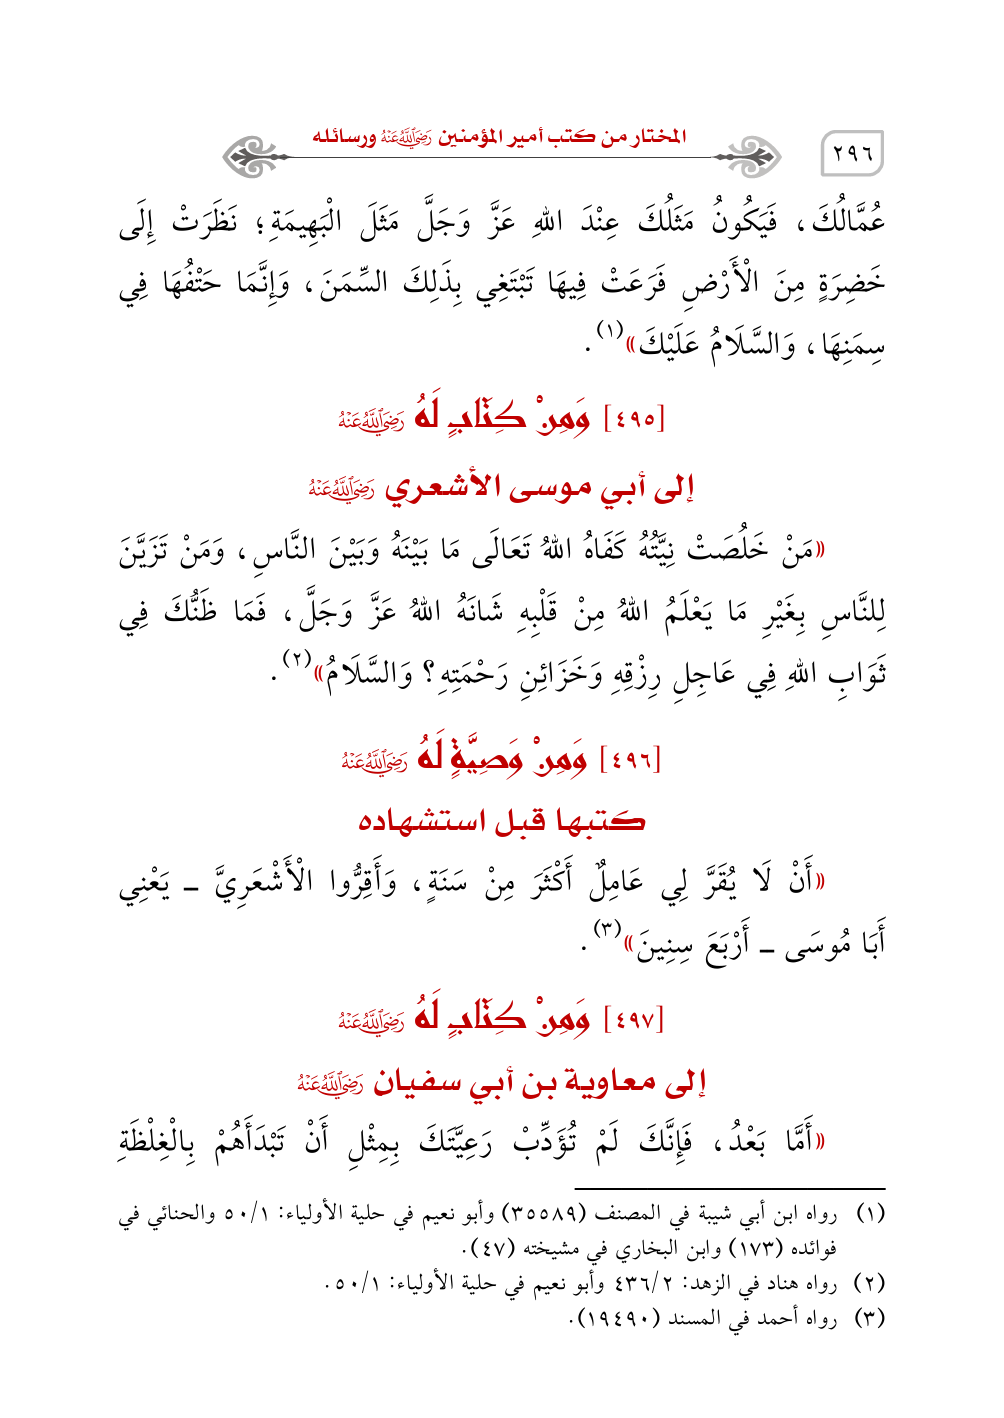 ٢٩٦
المختار من كتب أمير المؤمنين رَضِيَ اللَّهُ عَنْهُ ورسائله
عُمَّالُكَ، فَيَكُونُ مَثَلُكَ عِنْدَ اللهِ عَزَّ وَجَلَّ مَثَلَ الْبَهِيمَةِ؛ نَظَرَتْ إِلَى
خَضِرَةٍ مِنَ الْأَرْضِ فَرَعَتْ فِيهَا تَبْتَغِي بِذَلِكَ السِّمَنَ، وَإِنَّمَا حَتْفُهَا فِي
سِمَنِهَا، وَالسَّلَامُ عَلَيْكَ»(١).
[٤٩٥] وَمِنْ كِتَابٍ لَهُ رَضِيَ اللَّهُ عَنْهُ
إلى أبي موسى الأشعري رَضِيَ اللَّهُ عَنْهُ
«مَنْ خَلُصَتْ نِيَّتُهُ كَفَاهُ اللهُ تَعَالَى مَا بَيْنَهُ وَبَيْنَ النَّاسِ، وَمَنْ تَزَيَّنَ
لِلنَّاسِ بِغَيْرِ مَا يَعْلَمُ اللهُ مِنْ قَلْبِهِ شَانَهُ اللهُ عَزَّ وَجَلَّ، فَمَا ظَنُّكَ فِي
ثَوَابِ اللهِ فِي عَاجِلِ رِزْقِهِ وَخَزَائِنِ رَحْمَتِهِ؟ وَالسَّلَامُ»(٢).
[٤٩٦] وَمِنْ وَصِيَّةٍ لَهُ رَضِيَ اللَّهُ عَنْهُ
كتبها قبل استشهاده
«أَنْ لَا يُقَرَّ لِي عَامِلٌ أَكْثَرَ مِنْ سَنَةٍ، وَأَقِرُّوا الْأَشْعَرِيَّ ـ يَعْنِي
أَبَا مُوسَى ـ أَرْبَعَ سِنِينَ»(٣).
[٤٩٧] وَمِنْ كِتَابٍ لَهُ رَضِيَ اللَّهُ عَنْهُ
إلى معاوية بن أبي سفيان رَضِيَ اللَّهُ عَنْهُ
«أَمَّا بَعْدُ، فَإِنَّكَ لَمْ تُؤَدِّبْ رَعِيَّتَكَ بِمِثْلِ أَنْ تَبْدَأَهُمْ بِالْغِلْظَةِ
(١) رواه ابن أبي شيبة في المصنف (٣٥٥٨٩) وأبو نعيم في حلية الأولياء: ٥٠/١ والحنائي في
فوائده (١٧٣) وابن البخاري في مشيخته (٤٧).
(٢) رواه هناد في الزهد: ٤٣٦/٢ وأبو نعيم في حلية الأولياء: ٥٠/١.
(٣) رواه أحمد في المسند (١٩٤٩٠).